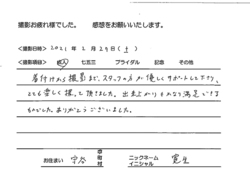 撮影お疲れ様でした。 感想をお願いいたします。
＜撮影日時＞ 2021年 2月 27日(土)
＜撮影項目＞ 成人 七五三 ブライダル 記念 その他
着付けから撮影まで、スタッフの方が優しくサポートして下さり、
とても楽しく撮って頂きました。出来上がりもかなり満足できる
ものでした。ありがとうございました。
お住まい 守谷 市 町 村 ニックネーム イニシャル